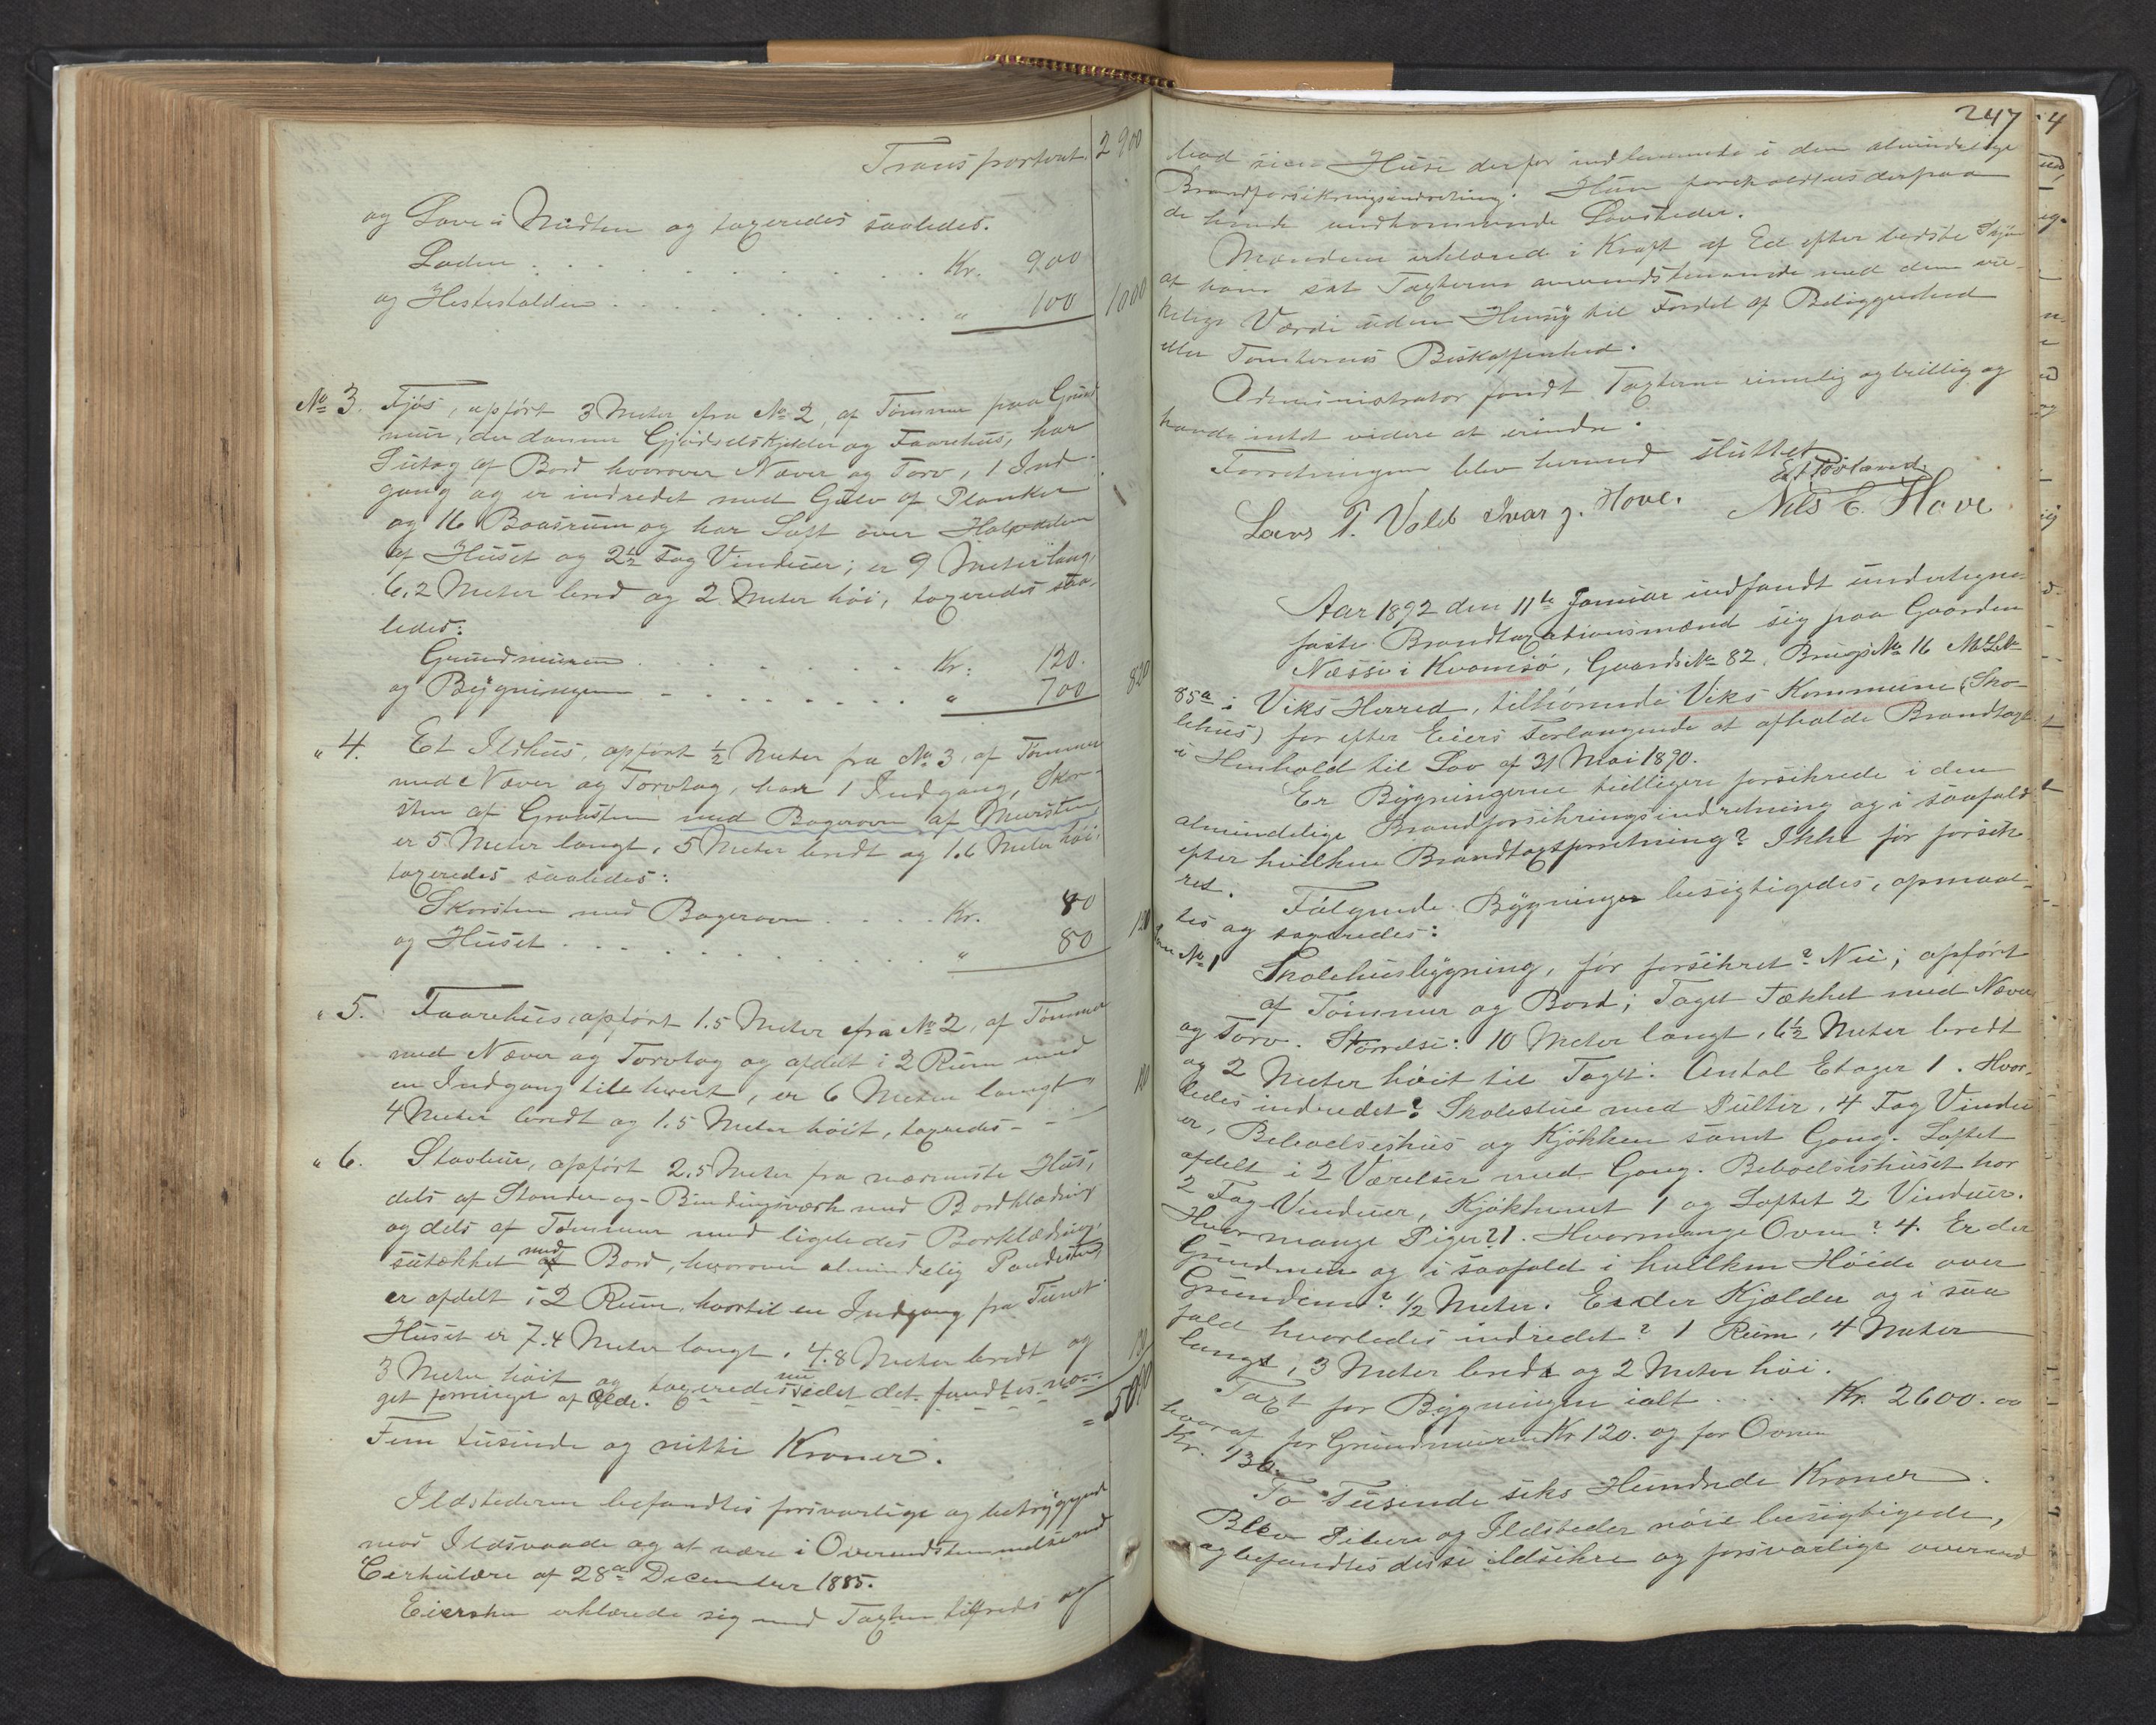 Transportert. 2900
og Lave i Midten og taxeredes saaledes.
Laden . . . . . . . . Kr. 900
og Hestestalden . . . . . . . . " 100 1000
No 3. Fjøs, opført 3 Meter fra No 2, af Tømmer paa Grund
mur, der danner Gjødselskjelder og Faarehus, har
Sutag af Bord hvorover Næver og Torv, 1 Ind-
gang og er indredet med Gulv af Planker
og 16 Baasrum og har Loft over Halvdelen
af Huset og 2½ Fag Vinduer; er 9 Meter lang,
6,2 Meter bred og 2 Meter høi, taxeredes saa-
ledes:
Grundmuren . . . . . . . Kr. 120.
og Bygningen - . . . . . . " 700 820
" 4. Et Ildhus, opført ½ Meter fra No 3, af Tømmer
med Næver og Torvtag, har 1 Indgang, Skor-
sten af Graasten med Bagerovn af Mursten,
er 5 Meter langt, 5 Meter bredt og 1.6 Meter høi,
taxeredes saaledes:
Skorsten med Bagerovn . . . . Kr. 80
og Huset . . . . . . . . . " 80
" 5. Faarehus, opført 1.5 Meter fra No 2, af Tømmer
med Næver og Torvtag og afdelt i 2 Rum med
en Indgang til hvert, er 6 Meter langt
4 Meter bredt og 1.5 Meter høit, taxeredes - - -
" 6. Stavbur, opført 2.5 Meter fra nærmeste Hus,
dels af Stander og - Bindingsværk med Bordklædning
og dels af Tømmer med ligeledes Bordklædning,
sutækket med af Bord, hvorover almindelig Pandesten
er afdelt i 2 Rum, hvortil en Indgang fra Tunet
Huset er 7.4 Meter langt, 4.8 Meter bredt og
3 Meter høit og taxeredes nu idet det fandtes no-
get forringet af Ælde.
Fem tusinde og nitti Kroner.
Ildstederne befandtes forsvarlige og betryggende
mod Ildsvaade og at være i Overensstemmelse med
Cirkulære af 28de December 1885.
Eiersken erklærede sig med Taxten tilfreds og
247
bad sine Huse derfor indlemmede i den almindelige
Brandforsikringsindretning. Hun foreholdtes derpaa
de hende vedkommende Lovsteder.
Mændene erklærede i Kraft af Ed efter bedste Skjøn
at have sat Taxterne overensstemmende med den vir-
kelige Værdi uden Hensyn til Fordel af Beliggenhed
eller Tomternes Beskaffenhed.
Administrator fandt Taxterne rimelig og billig og
havde intet videre at erindre.
Forretningen blev hermed sluttet
Lars T. Vold Ivar J. Hove. Nils E. Hove
Aar 1892 den 11te Januar indfandt undertegne-
faste Brandtaxationsmænd sig paa Gaarden
Næsse i Kvamsø, Gaards No 82, Brugs No 16 M L No
85a i Viks Herred, tilhørende Viks Kommune (Sko-
lehus) for efter Eiers Forlangende at afholde Brandtaxt
i Henhold til Lov af 31 Mai 1890.
Er Bygningerne tidligere forsikrede i den
almindelige Brandforsikringsindretning og i saafald
efter hvilken Brandtaxtforretning? Ikke før forsik-
ret.
Følgende Bygninger besigtigedes, opmaal-
tes og taxeredes:
No 1 Skolehusbygning, før forsikret? Nei; opført
af Tømmer og Bord; Taget tækket med Næver
og Torv. Størrelse: 10 Meter langt, 6½ Meter bredt
og 2 Meter høit til Taget. Antal Etager 1. Hvor-
ledes indredet? Skolestue med Pulter, 4 Fag Vindu
er, Beboelseshus og Kjøkken samt Gang. Loftet
afdelt i 2 Værelser med Gang. Beboelseshuset har
2 Fag Vinduer, Kjøkkenet 1 og Loftet 2 Vinduer.
Hvor mange Piger? 1. Hvormange Ovne? 4. Er der
Grundmur og i saafald i hvilken Høide over
Grunden? 1/2 Meter. Er der Kjælder og i saa
fald hvorledes indredet? 1 Rum, 4 Meter
langt, 3 Meter bredt og 2 Meter høi.
Taxt for Bygningen ialt . . . . Kr. 2600. 00
hvoraf for Grundmuren Kr 120. og for Ovnen
Kr. 130.
To Tusinde seks Hundrede Kroner.
Blev Piber og Ildsteder nøie besigtigede,
og befandtes disse ildsikre og forsvarlige overens